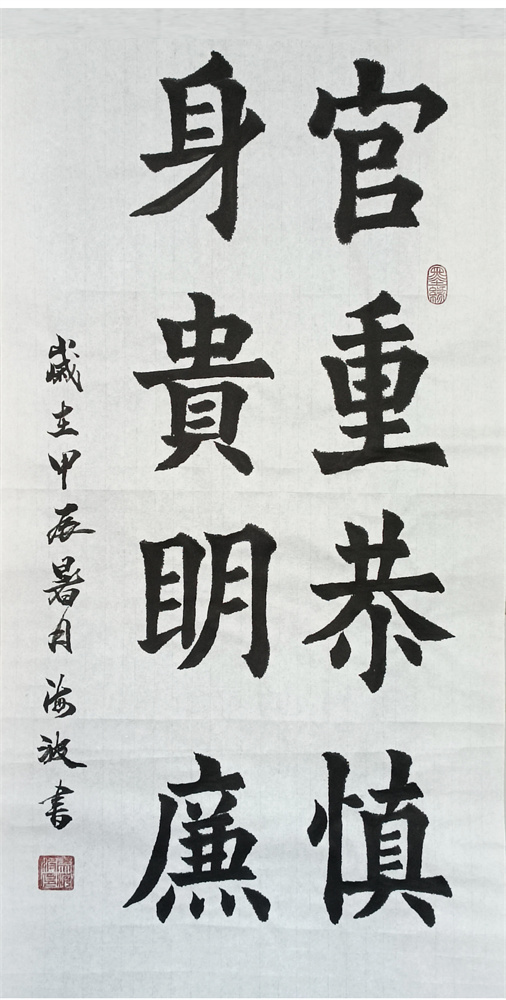 官重恭慎
身貴明廉
歲在甲辰暑月海波書